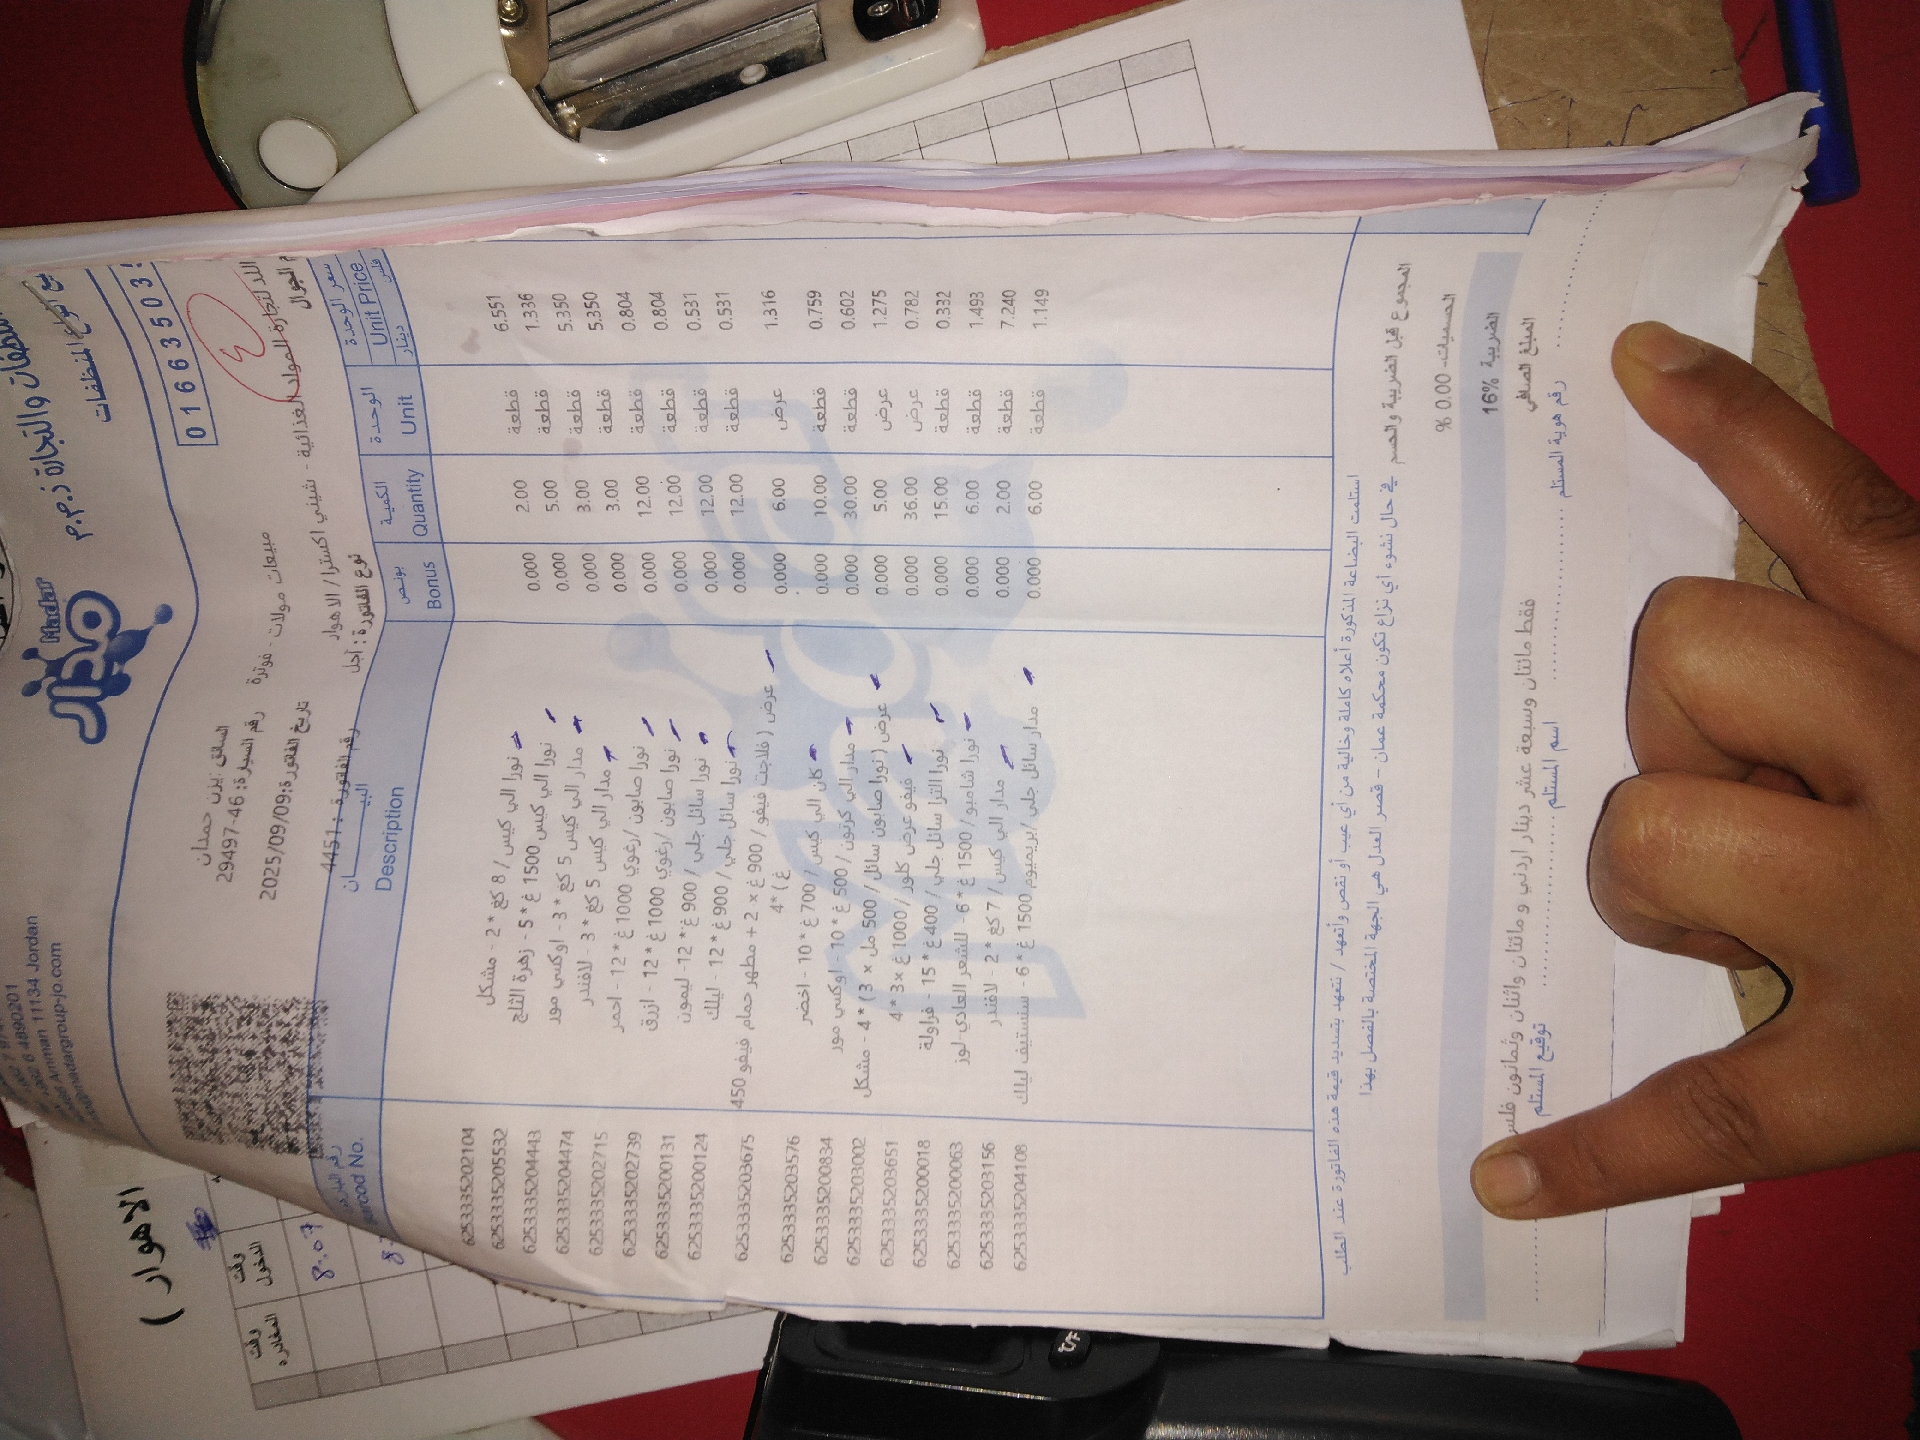 بيع انواع المنظفات
والتجارة ذ.م.م
Madar
مدار
6 4890201
Amman 11134 Jordan
madargroup-jo.com
01663503
مبيعات مولات - فوترة
السائق :يزن حمدان
رقم السيارة:46-29497
تاريخ الفاتورة:2025/09/09
رقم الفاتورة : 4451
نوع الفاتورة : آجل
لتجارة المواد الغذائية - شيني اكسترا / الاهوار
البيــــــان
Description
بونص
Bonus
الكمية
Quantity
الوحدة
Unit
سعر الوحدة
Unit Price
دينار فلس
6253335202104 نورا الي كيس / 8 كغ * 2 - مشكل 0.000 2.00 قطعة 6.551
6253335205532 نورا الي كيس 1500 غ * 5 - زهرة الثلج 0.000 5.00 قطعة 1.336
6253335204443 مدار الي كيس 5 كغ * 3 - اوكسي مور 0.000 3.00 قطعة 5.350
6253335204474 مدار الي كيس 5 كغ * 3 - لافندر 0.000 3.00 قطعة 5.350
6253335202715 نورا صابون /رغوي 1000 غ * 12 - احمر 0.000 12.00 قطعة 0.804
6253335202739 نورا صابون /رغوي 1000 غ * 12 - ازرق 0.000 12.00 قطعة 0.804
6253335200131 نورا سائل جلي / 900 غ * 12 - ليمون 0.000 12.00 قطعة 0.531
6253335200124 نورا سائل جلي / 900 غ * 12 - ليلك 0.000 12.00 قطعة 0.531
6253335203675 عرض ( فلاجت فيفو / 900 غ x 2 + مطهر حمام فيفو 450 غ ) *4 0.000 6.00 عرض 1.316
6253335203576 كان الي كيس / 700 غ * 10 - اخضر 0.000 10.00 قطعة 0.759
6253335200834 مدار الي كرتون / 500 غ * 10 - اوكسي مور 0.000 30.00 قطعة 0.602
6253335203002 عرض ( نورا صابون سائل / 500 مل x 3 ) * 4 - مشكل 0.000 5.00 عرض 1.275
6253335203651 فيفو عرض كلور / 1000 غ x3 *4 0.000 36.00 عرض 0.782
6253335200018 نورا الترا سائل جلي / 400 غ * 15 - فراولة 0.000 15.00 قطعة 0.332
6253335200063 نورا شامبو / 1500 غ * 6 - للشعر العادي-لوز 0.000 6.00 قطعة 1.493
6253335203156 مدار الي كيس / 7 كغ * 2 - لافندر 0.000 2.00 قطعة 7.240
6253335204108 مدار سائل جلي /بريميوم 1500 غ * 6 - سنستيف ليلك 0.000 6.00 قطعة 1.149
استلمت البضاعة المذكورة أعلاه كاملة وخالية من أي عيب أو نقص وأتعهد / نتعهد بتسديد قيمة هذه الفاتورة عند الطلب
في حال نشوء اي نزاع تكون محكمة عمان - قصر العدل هي الجهة المختصة بالفصل بهذا
المجموع قبل الضريبة والحسم
الحسميات- 0.00 %
الضريبة 16%
المبلغ الصافي
فقط مائتان وسبعة عشر دينار اردني و مائتان واثنان وثمانون فلس
توقيع المستلم
اسم المستلم
رقم هوية المستلم
الاهوار )
وقت الدخول
وقت المغادرة
8.07